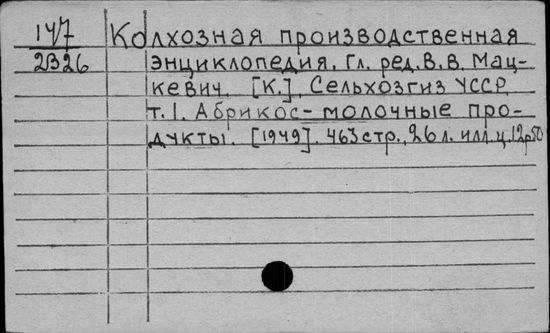 147 Колхозная производственная
2326 энциклопедия. Гл. ред. В. В. Мац-
кевич. [К.], Сельхозгиз УССР,
т. 1. Абрикос-молочные про-
дукты. [1949]. 463 стр., 26 л. илл. ц. 12р50